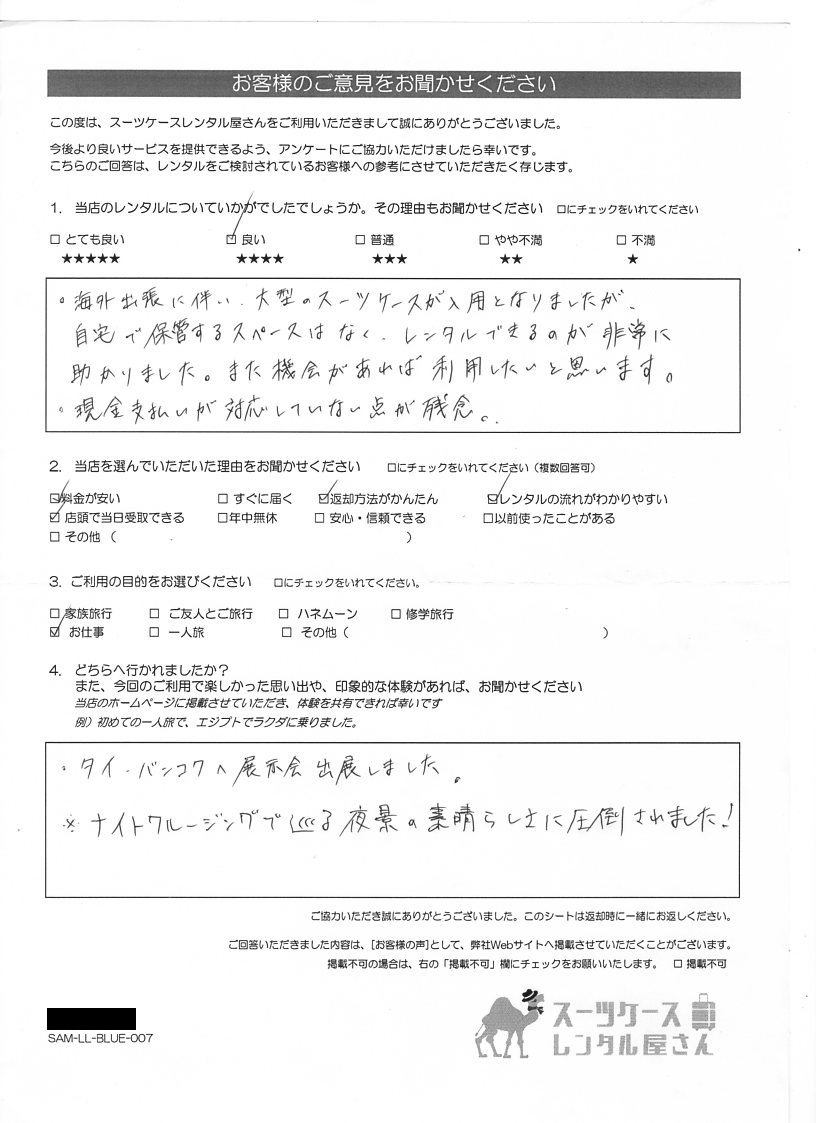 お客様のご意見をお聞かせください
この度は、スーツケースレンタル屋さんをご利用いただきまして誠にありがとうございました。
今後より良いサービスを提供できるよう、アンケートにご協力いただけましたら幸いです。
こちらのご回答は、レンタルをご検討されているお客様への参考にさせていただきたく存じます。
1. 当店のレンタルについていかがでしたでしょうか。その理由もお聞かせください □にチェックをいれてください
□ とても良い ☑ 良い □ 普通 □ やや不満 □ 不満
★★★★★ ★★★★ ★★★ ★★ ★
。海外出張に伴い、大型のスーツケースが入用となりましたが、
自宅で保管するスペースはなく、レンタルできるのが非常に
助かりました。また機会があれば利用したいと思います。
。現金支払いが対応していない点が残念。
2. 当店を選んでいただいた理由をお聞かせください □にチェックをいれてください（複数回答可）
☑料金が安い □ すぐに届く ☑返却方法がかんたん ☑レンタルの流れがわかりやすい
☑ 店頭で当日受取できる □年中無休 □ 安心・信頼できる □以前使ったことがある
□ その他（ ）
3. ご利用の目的をお選びください □にチェックをいれてください。
□ 家族旅行 □ ご友人とご旅行 □ ハネムーン □ 修学旅行
☑ お仕事 □ 一人旅 □ その他（ ）
4. どちらへ行かれましたか？
また、今回のご利用で楽しかった思い出や、印象的な体験があれば、お聞かせください
当店のホームページに掲載させていただき、体験を共有できれば幸いです
例）初めての一人旅で、エジプトでラクダに乗りました。
。タイ・バンコクへ展示会出展しました。
※ナイトクルージングで巡る夜景の素晴らしさに圧倒されました！
ご協力いただき誠にありがとうございました。このシートは返却時に一緒にお返しください。
ご回答いただきました内容は、[お客様の声]として、弊社Webサイトへ掲載させていただくことがございます。
掲載不可の場合は、右の「掲載不可」欄にチェックをお願いいたします。 □ 掲載不可
SAM-LL-BLUE-007
スーツケース
レンタル屋さん